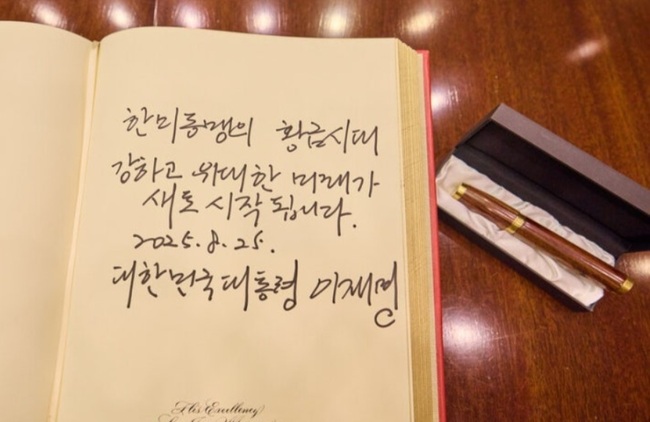 한미동맹의 황금시대
강하고 위대한 미래가
새로 시작됩니다.
2025.8.25.
대한민국대통령 이재명
His Excellency